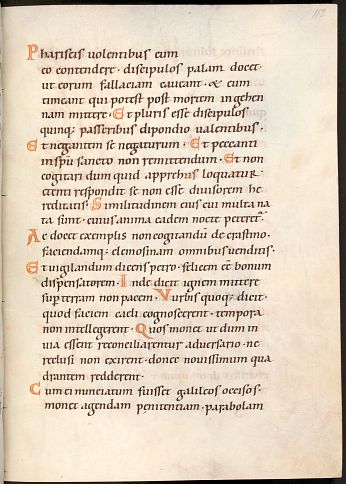 Phariseis volentibus eum
eo contendere · discipulos palam docet
ut eorum fallaciam caveant · & eum
timeant qui potest post mortem in gehen
nam mittere · Et pluris esse discipulos
quinq; passeribus dipondio valentibus ·
Et negantem se negaturum · Et peccanti
in spm sancto non remittendum · Et non
cogitari dum quid apprehus loquatur ·
etenti respondit se non esse divisorem he
reditatis · Similitudinem eius cui multa na
ta sunt · cuius anima eadem nocte petret
Ac docet exemplis non cogitandū de crastino ·
faciendamq; elemosinam omnibus venditis ·
Et vigilandum dicens petro · felicem eē bonum
dispensatorem · Inde dicit ignem mittere
super terram non pacem · Turbis quoq; dicit ·
quod faciem caeli cognoscerent · tempora
non intellegerent · Quos monet ut dum in
via essent reconciliarentur adversario · ne
reclusi non exirent · donec novissimum qua
drantem redderent ·
Cum ei nunciatum fuisset galileos occisos ·
monet agendam penitentiam · parabolam